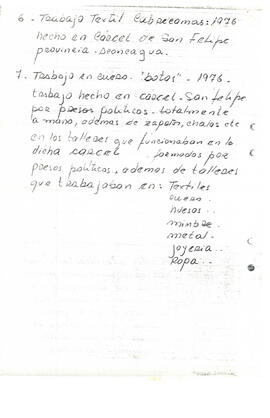 6 - Trabajo Textil Cubrecamas: 1976
hecho en Cárcel de San Felipe
provincia - Aconcagua.
7 - Trabajo en cuero. "botas" - 1976 -
trabajo hecho en carcel - San felipe
por presos políticos - totalmente
a mano, ademas de zapatos, chalas etc
en los talleres que funcionaban en la
dicha carcel formados por
presos políticos, ademas de talleres
que trabajaban en: Textiles
cuero..
huesos..
mimbre..
metal..
joyeria..
Ropa..